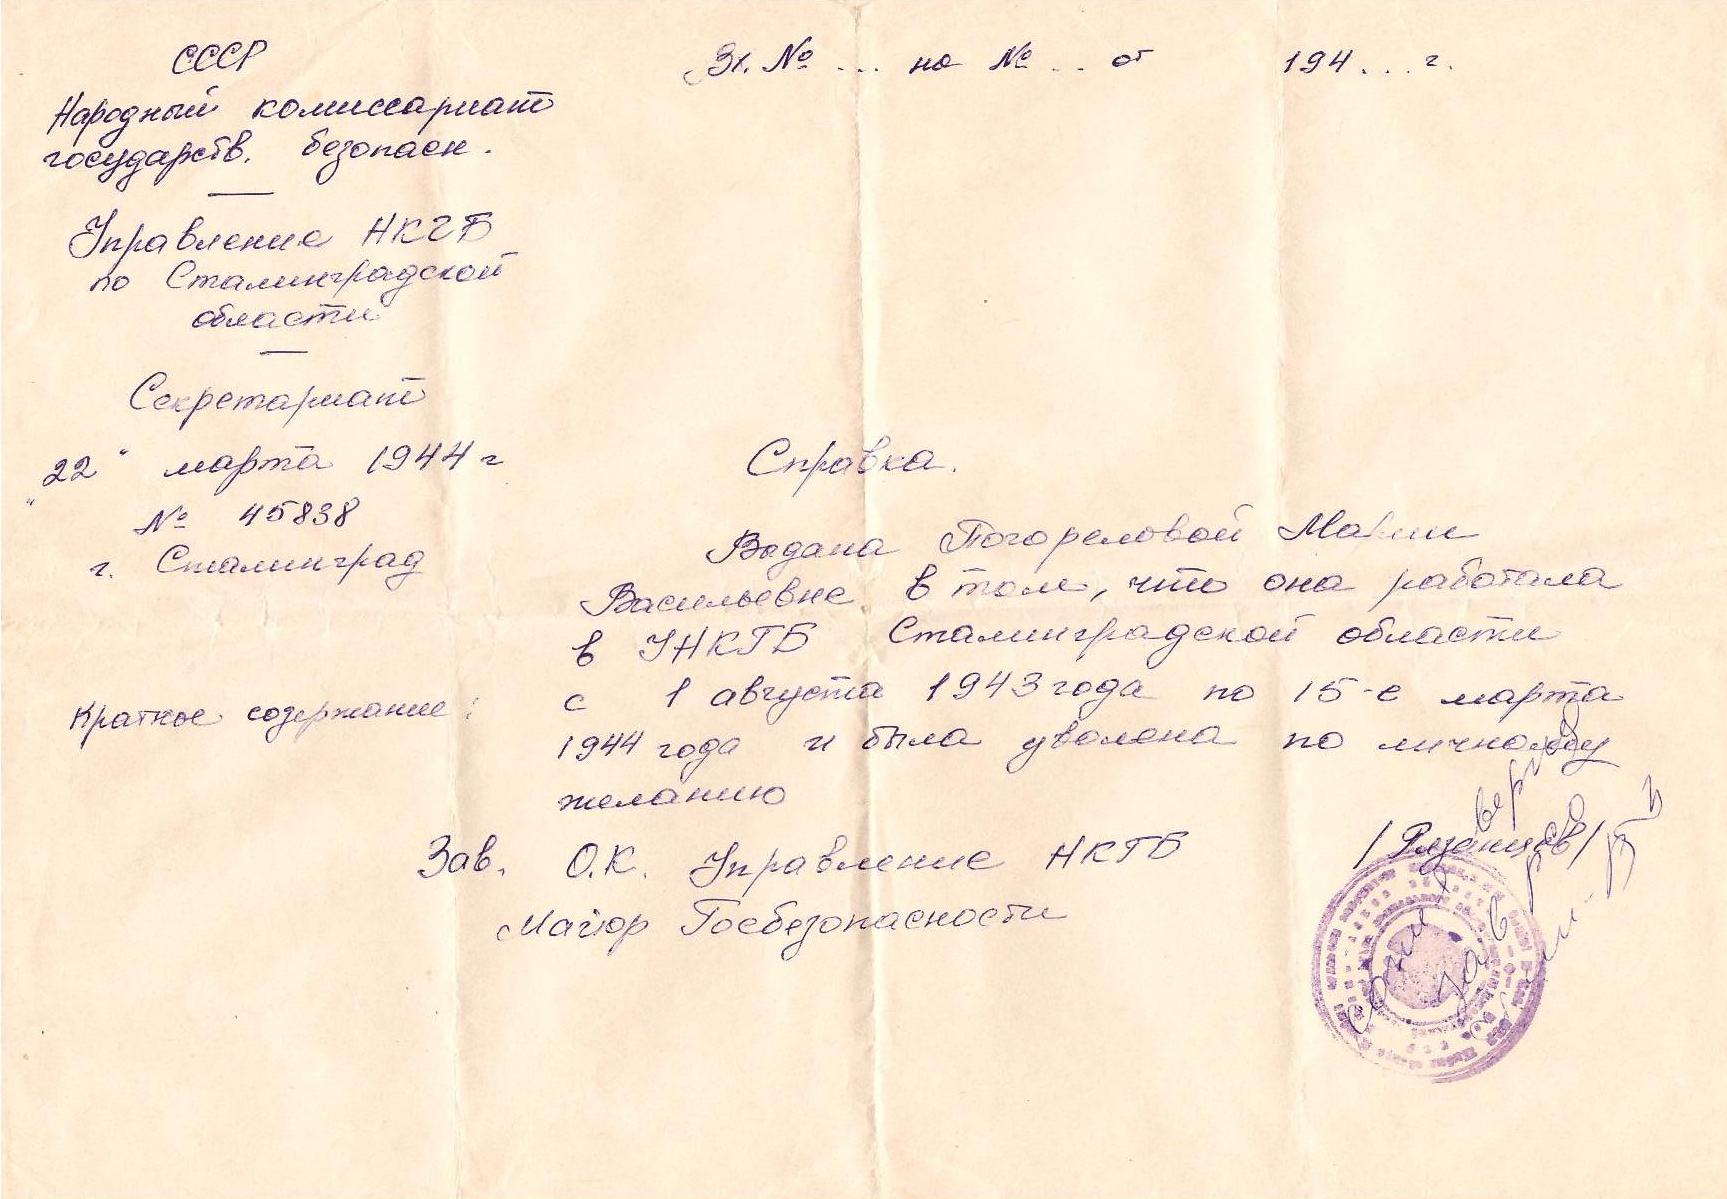 СССР
Народный комиссариат
государств. безопасн.
Управление НКГБ
по Сталинградской
области
Секретариат
"22" марта 1944 г
№ 45838
г. Сталинград
Краткое содержание:
Эк. № ... на № ... от 194... г.
Справка.
Выдана Погореловой Марии
Васильевне в том, что она работала
в УНКГБ Сталинградской области
с 1 августа 1943 года по 15-е марта
1944 года и была уволена по личному
желанию
Зав. О.К. Управление НКГБ /Рязанцев/
Майор Госбезопасности
верна